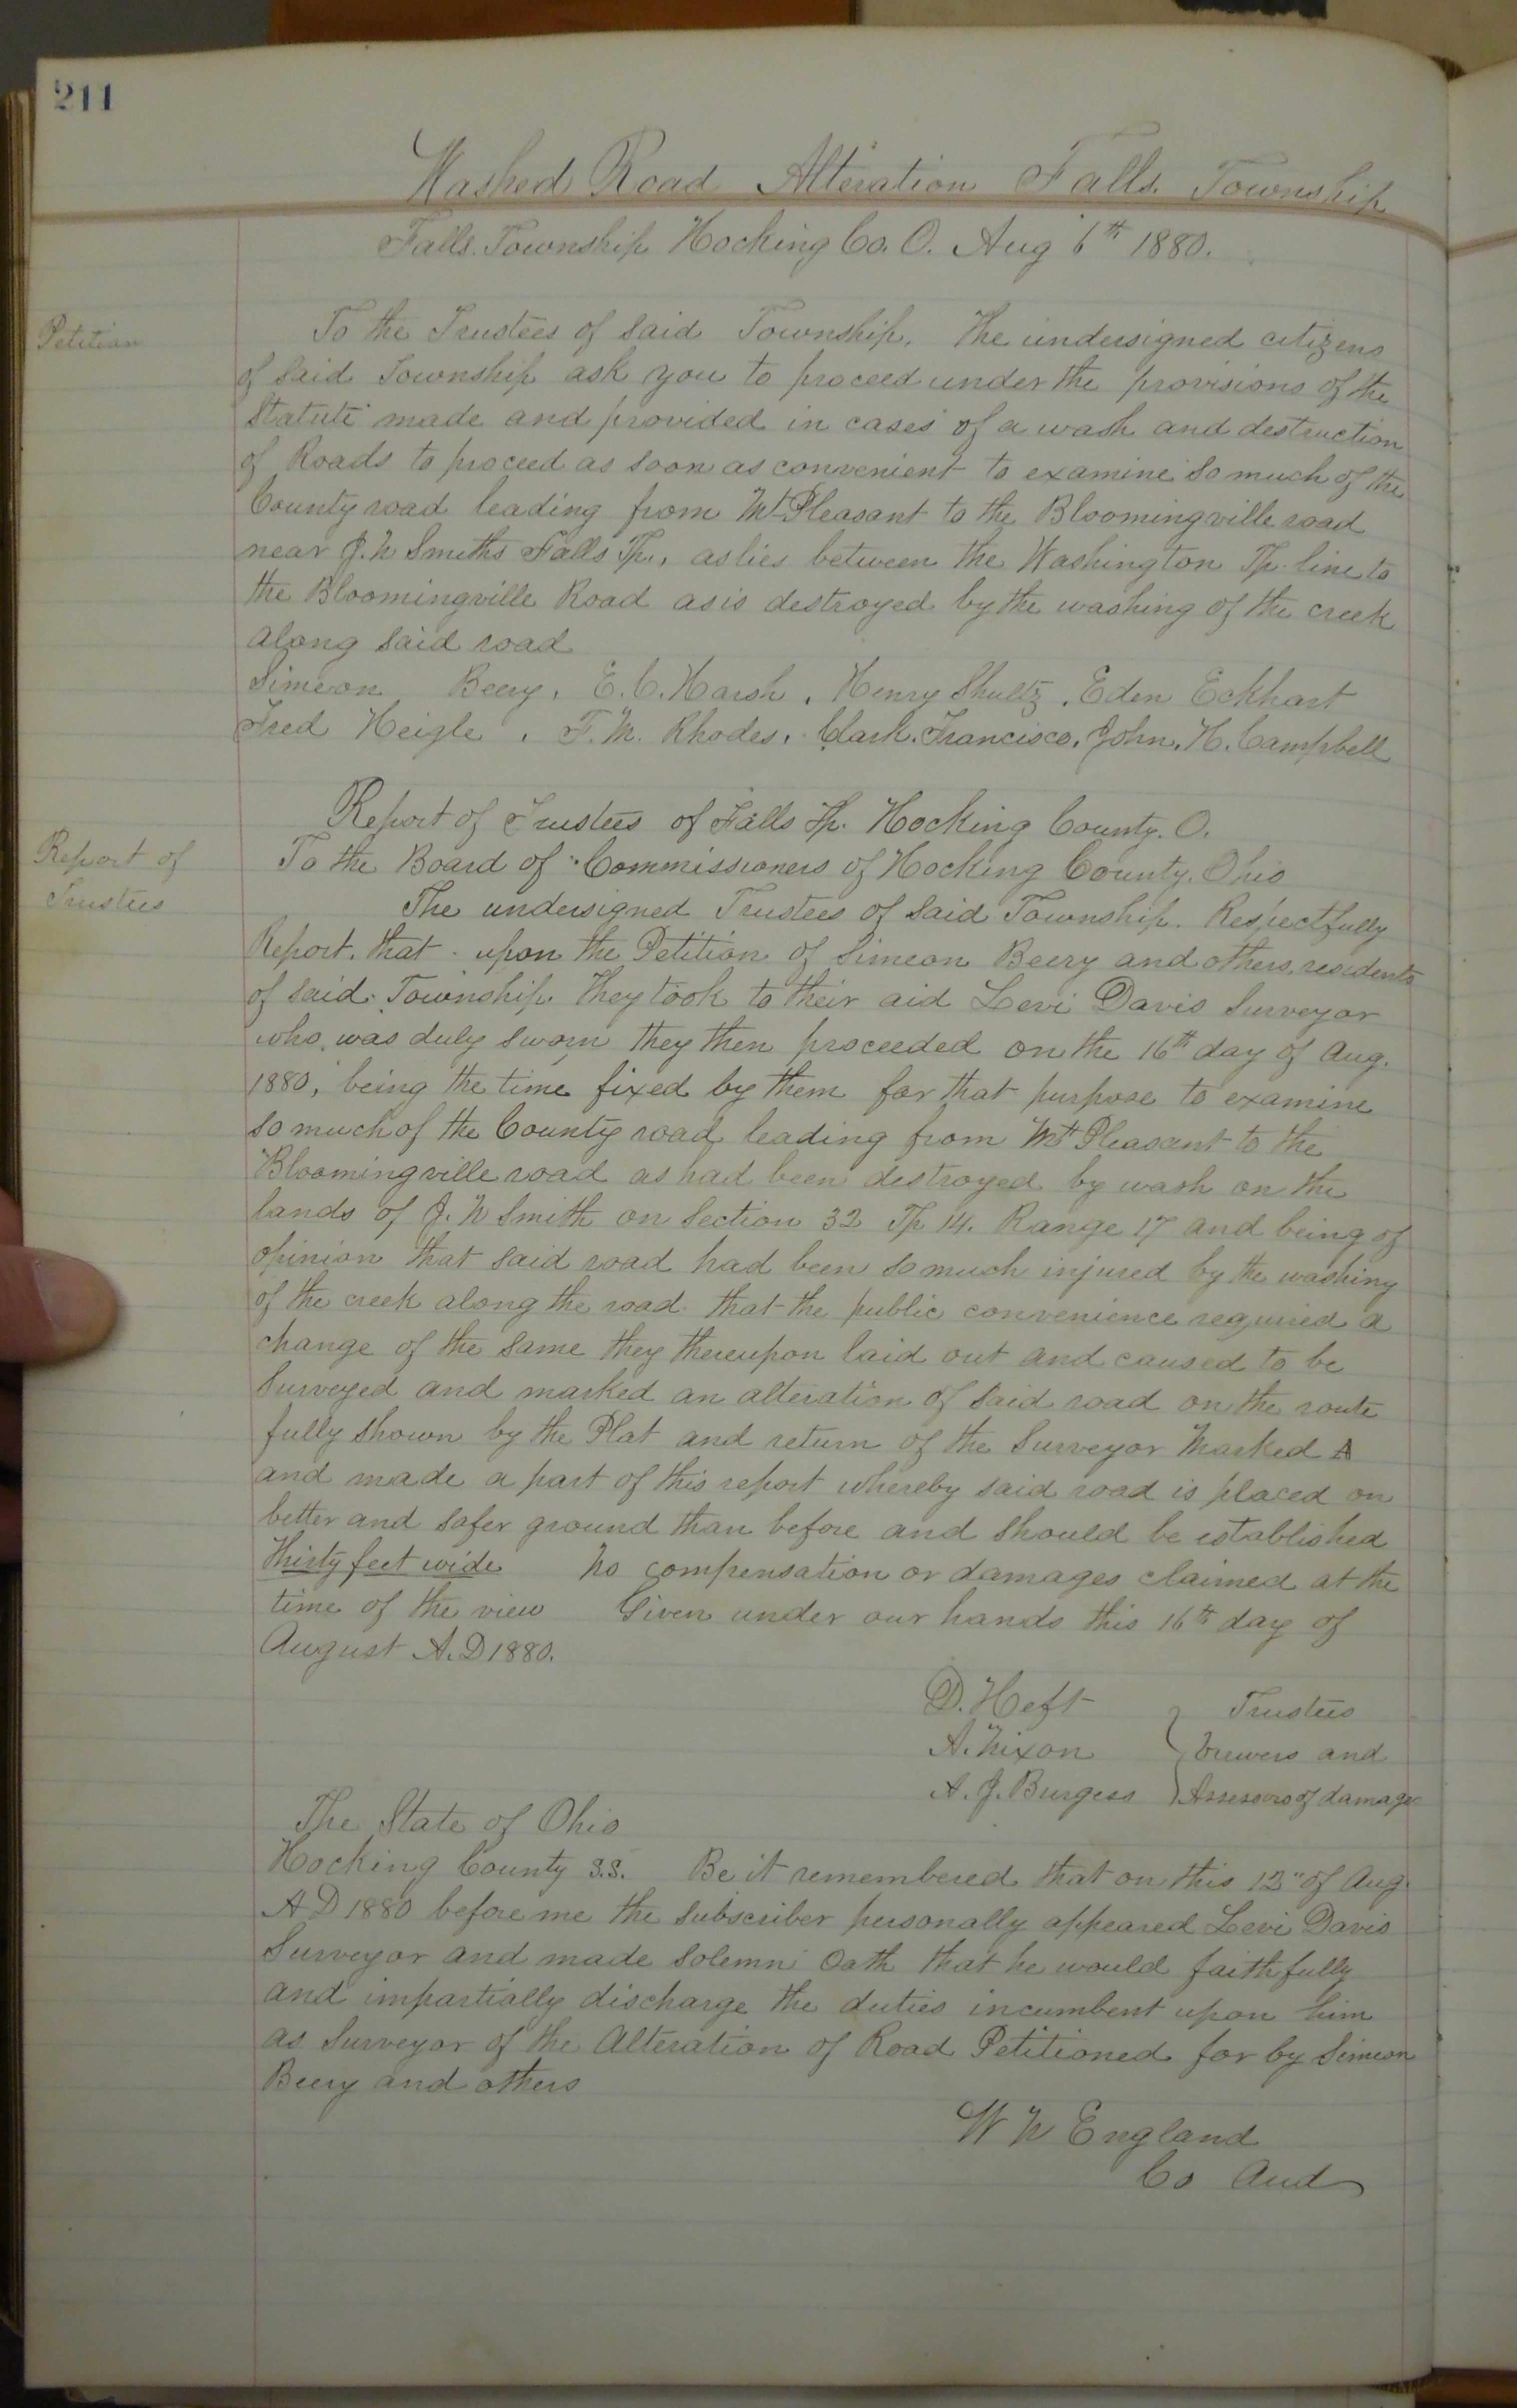 211
Washed Road Alteration Falls. Township
Falls. Township Hocking Co. O. Aug 6th 1880.
Petition
To the Trustees of said Township. The undersigned citizens
of said Township ask you to proceed under the provisions of the
Statute made and provided in cases of a wash and destruction
of Roads to proceed as soon as convenient to examine so much of the
County road leading from Mt Pleasant to the Bloomingville road
near J. N Smiths Falls Tp., as lies between the Washington Tp. line to
the Bloomingville Road as is destroyed by the washing of the creek
along said road
Simeon Beery, E. C. Harsh, Henry Shultz, Eden Eckhart
Fred Heigle, F. M. Rhodes, Clark. Francisco, John. H. Campbell
Report of Trustees of Falls Tp. Hocking County. O.
Report of
Trustees
To the Board of Commissioners of Hocking County, Ohio
The undersigned Trustees of said Township. Respectfully
Report. that upon the Petition of Simeon Beery and others, residents
of said Township. They took to their aid Levi Davis Surveyor
who was duly sworn they then proceeded on the 16th day of Aug.
1880, being the time fixed by them for that purpose to examine
so much of the County road leading from Mt Pleasant to the
Bloomingville road as had been destroyed by wash on the
lands of J. N Smith on Section 32 Tp 14. Range 17 and being of
opinion that said road had been so much injured by the washing
of the creek along the road that the public convenience required a
change of the same they thereupon laid out and caused to be
Surveyed and marked an alteration of said road on the route
fully shown by the Plat and return of the Surveyor Marked A
and made a part of this report whereby said road is placed on
better and safer ground than before and should be established
Thirty feet wide No compensation or damages claimed at the
time of the view Given under our hands this 16th day of
August A. D 1880.
D. Heft Trustees
A. Nixon Viewers and
A. J. Burgess Assessors of damages
The State of Ohio
Hocking County S.S. Be it remembered that on this 12" of Aug.
A D 1880 before me the subscriber personally appeared Levi Davis
Surveyor and made solemn Oath that he would faithfully
and impartially discharge the duties incumbent upon him
as Surveyor of the Alteration of Road Petitioned for by Simeon
Beery and others
W N England
Co Aud